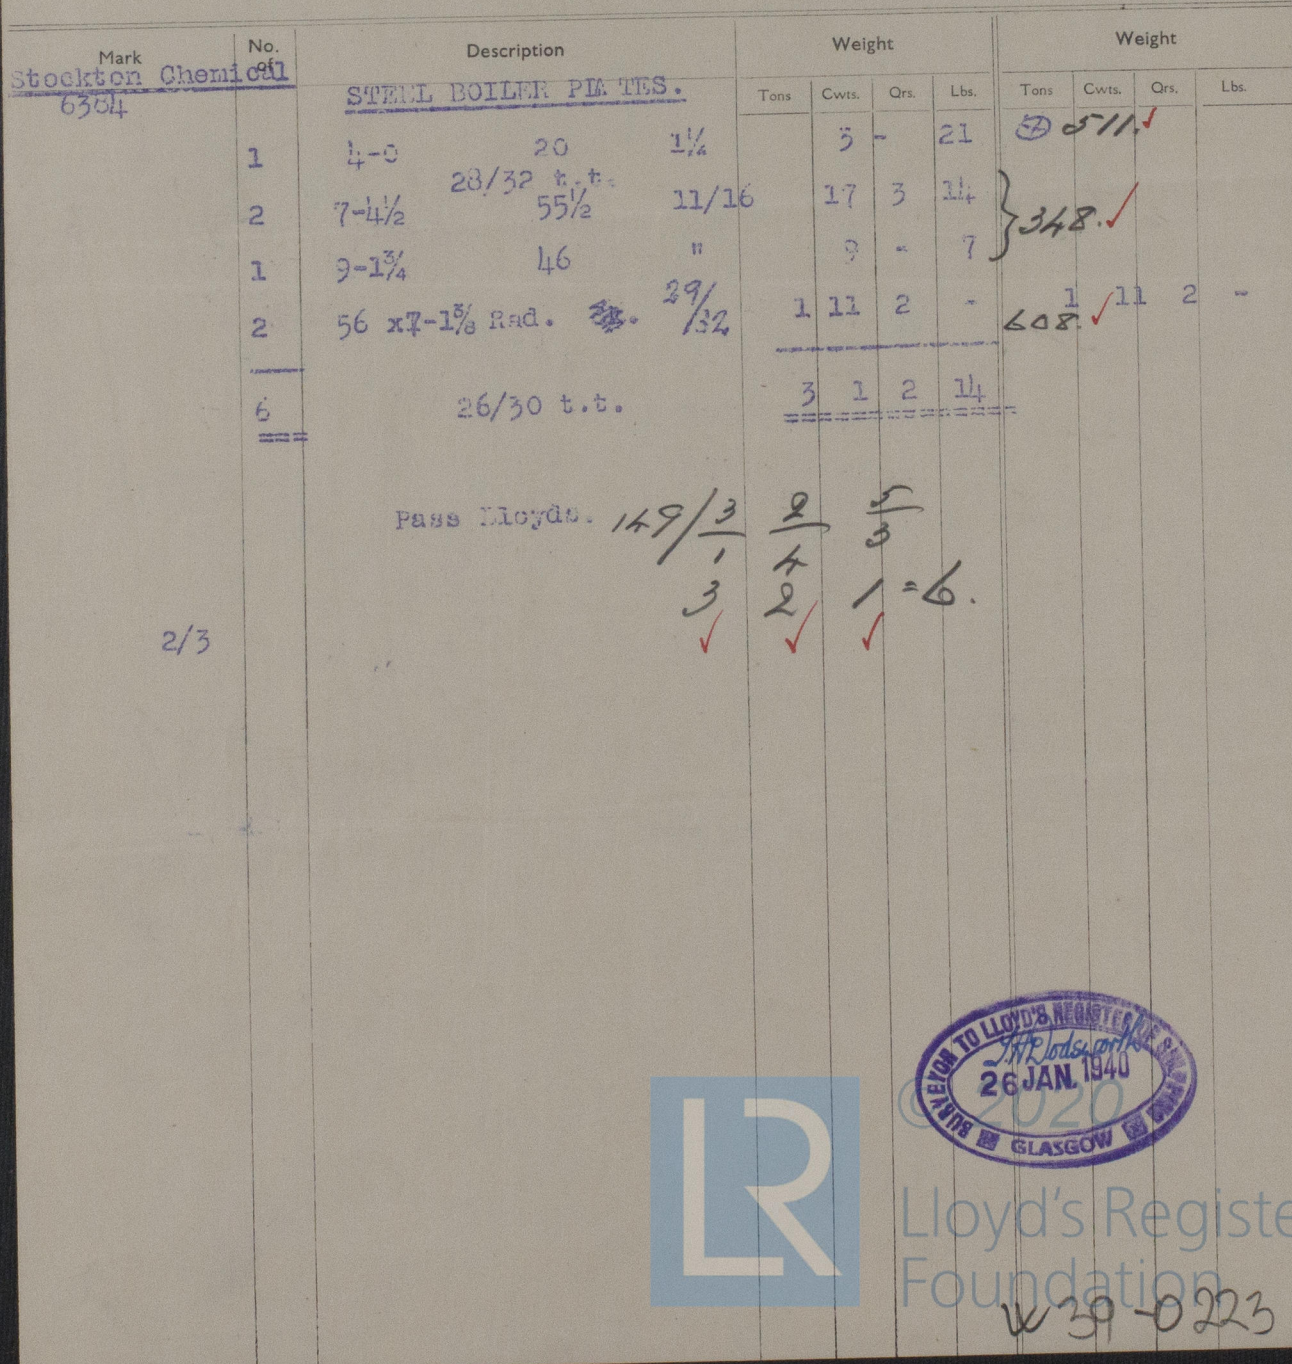 Mark No. of Description Weight Weight
Tons Cwts. Qrs. Lbs. Tons Cwts. Qrs. Lbs.
Stockton Chemical
6364 STEEL BOILER PLATES.
1 4-0 20 1¼ 5 - 21 511.
28/32 t.t.
2 7-4½ 55½ 11/16 17 3 14 348.
1 9-1¾ 46 " 9 - 7
2 56 x7-1⅜ Rad. 29/32 1 11 2 - 1 11 2 -
608.
6 26/30 t.t. 3 1 2 14
Pass Lloyds. 149/3/1 2/4 5/3
3 2 1 = 6.
2/3
SURVEYOR TO LLOYD'S REGISTER OF SHIPPING
26 JAN. 1940
GLASGOW
© 2020
LR
Lloyd's Registe
Foundation
W39-0223